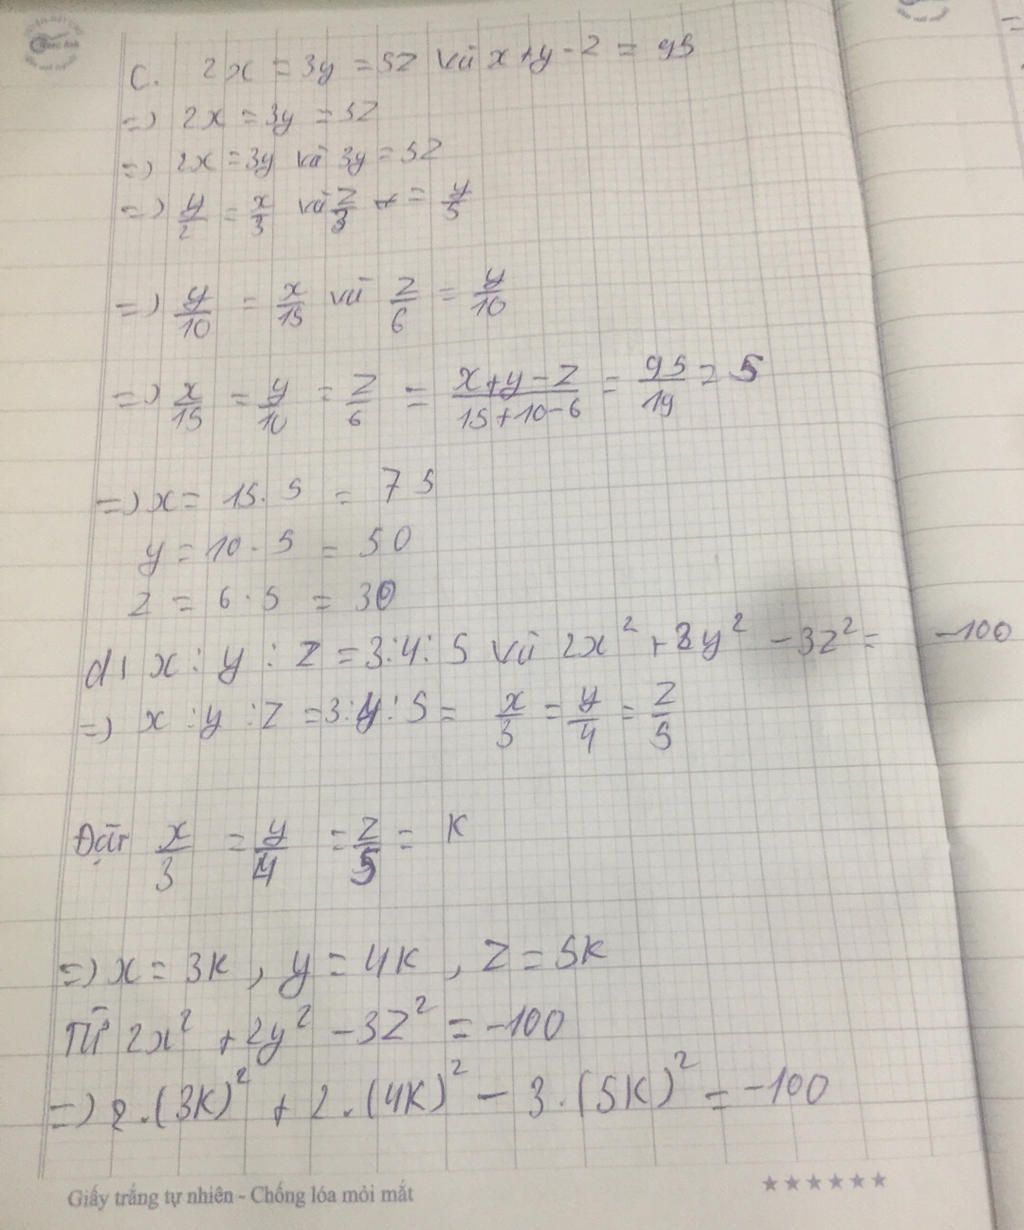 C. 2x = 3y = 5z và x+y-z = 95
=) 2x = 3y = 5z
=) 2x = 3y và 3y = 5z
=) y/2 = x/3 và z/3 = y/5
=) y/10 = x/15 và z/6 = y/10
=) x/15 = y/10 = z/6 = x+y-z/15+10-6 = 95/19 = 5
=) x = 15.5 = 75
y = 10.5 = 50
z = 6.5 = 30
d, x : y : z = 3:4:5 và 2x² + 2y² - 3z² = -100
=) x : y : z = 3:4:5 = x/3 = y/4 = z/5
Đặt x/3 = y/4 = z/5 = K
=) x = 3K, y = 4K, z = 5K
Từ 2x² + 2y² - 3z² = -100
=) 2.(3K)² + 2.(4K)² - 3.(5K)² = -100
Giấy trắng tự nhiên - Chống lóa mỏi mắt